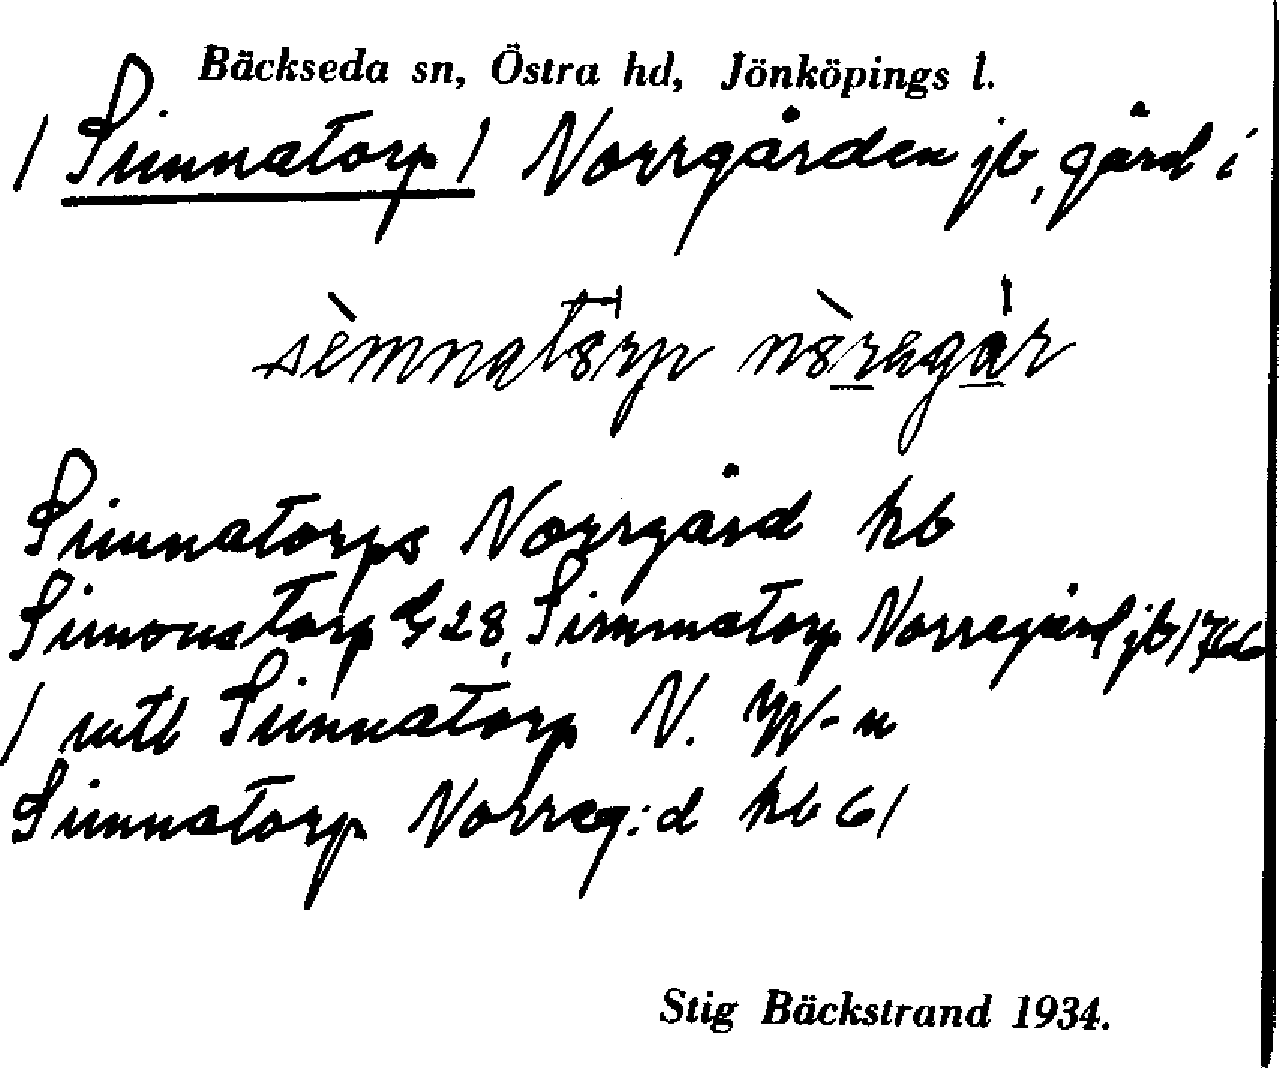 Bäckseda sn, Östra hd, Jönköpings l.
/ Simnatorp / Norrgården jb, gård i
sèmnatörp nòragår
Simnatorps Norrgård hb
Simonatorp G 28, Simmatorp Norregård jb 1766
/ rutl Simnatorp N. W-n
Simnatorp Norreg:d hb 61
Stig Bäckstrand 1934.